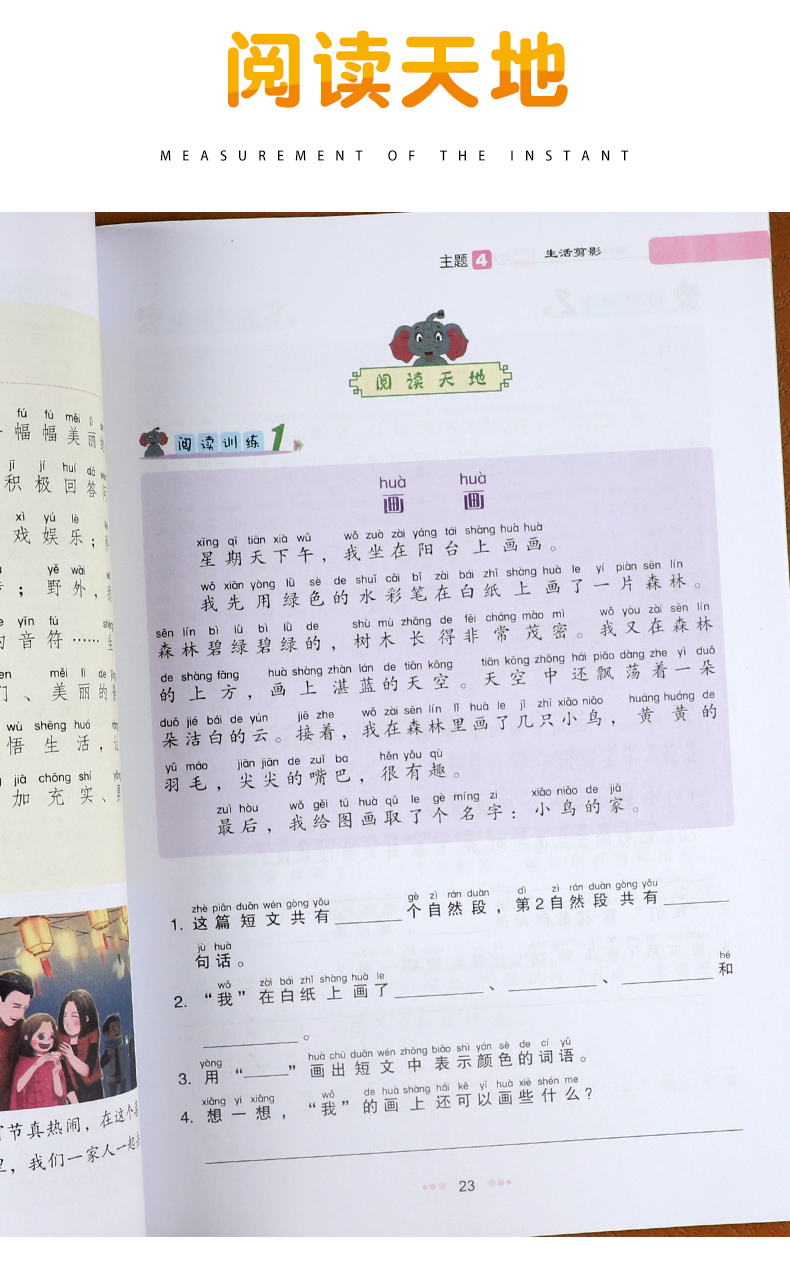 阅读天地
MEASUREMENT OF THE INSTANT
主题4 生活剪影
阅读天地
阅读训练1
huà huà
画 画
xīng qī tiān xià wǔ wǒ zuò zài yáng tái shàng huà huà
星期天下午，我坐在阳台上画画。
wǒ xiān yòng lǜ sè de shuǐ cǎi bǐ zài bái zhǐ shàng huà le yí piàn sēn lín
我先用绿色的水彩笔在白纸上画了一片森林。
sēn lín bì lǜ bì lǜ de shù mù zhǎng de fēi cháng mào mì wǒ yòu zài sēn lín
森林碧绿碧绿的，树木长得非常茂密。我又在森林
de shàng fāng huà shàng zhàn lán de tiān kōng tiān kōng zhōng hái piāo dàng zhe yì duǒ
的上方，画上湛蓝的天空。天空中还飘荡着一朵
duǒ jié bái de yún jiē zhe wǒ zài sēn lín lǐ huà le jǐ zhī xiǎo niǎo huáng huáng de
朵洁白的云。接着，我在森林里画了几只小鸟，黄黄的
yǔ máo jiān jiān de zuǐ ba hěn yǒu qù
羽毛，尖尖的嘴巴，很有趣。
zuì hòu wǒ gěi tú huà qǔ le gè míng zi xiǎo niǎo de jiā
最后，我给图画取了个名字：小鸟的家。
zhè piān duǎn wén gòng yǒu gè zì rán duàn dì zì rán duàn gòng yǒu
1. 这篇短文共有______个自然段，第2自然段共有______
jù huà
句话。
wǒ zài bái zhǐ shàng huà le hé
2. “我”在白纸上画了________、________、________和
________。
yòng huà chū duǎn wén zhōng biǎo shì yán sè de cí yǔ
3. 用“____”画出短文中表示颜色的词语。
xiǎng yi xiǎng wǒ de huà shàng hái kě yǐ huà xiē shén me
4. 想一想，“我”的画上还可以画些什么？
23
fú fú měi lì
幅幅美丽
jī jí huí dá
积极回答
xì yú lè
戏娱乐；
yě wài
；野外，
yīn fú
的音符……
měi lì de
们、美丽的
wù shēng huó
悟生活，
jiā chōng shí
加充实、
节真热闹，在这个
里，我们一家人一起